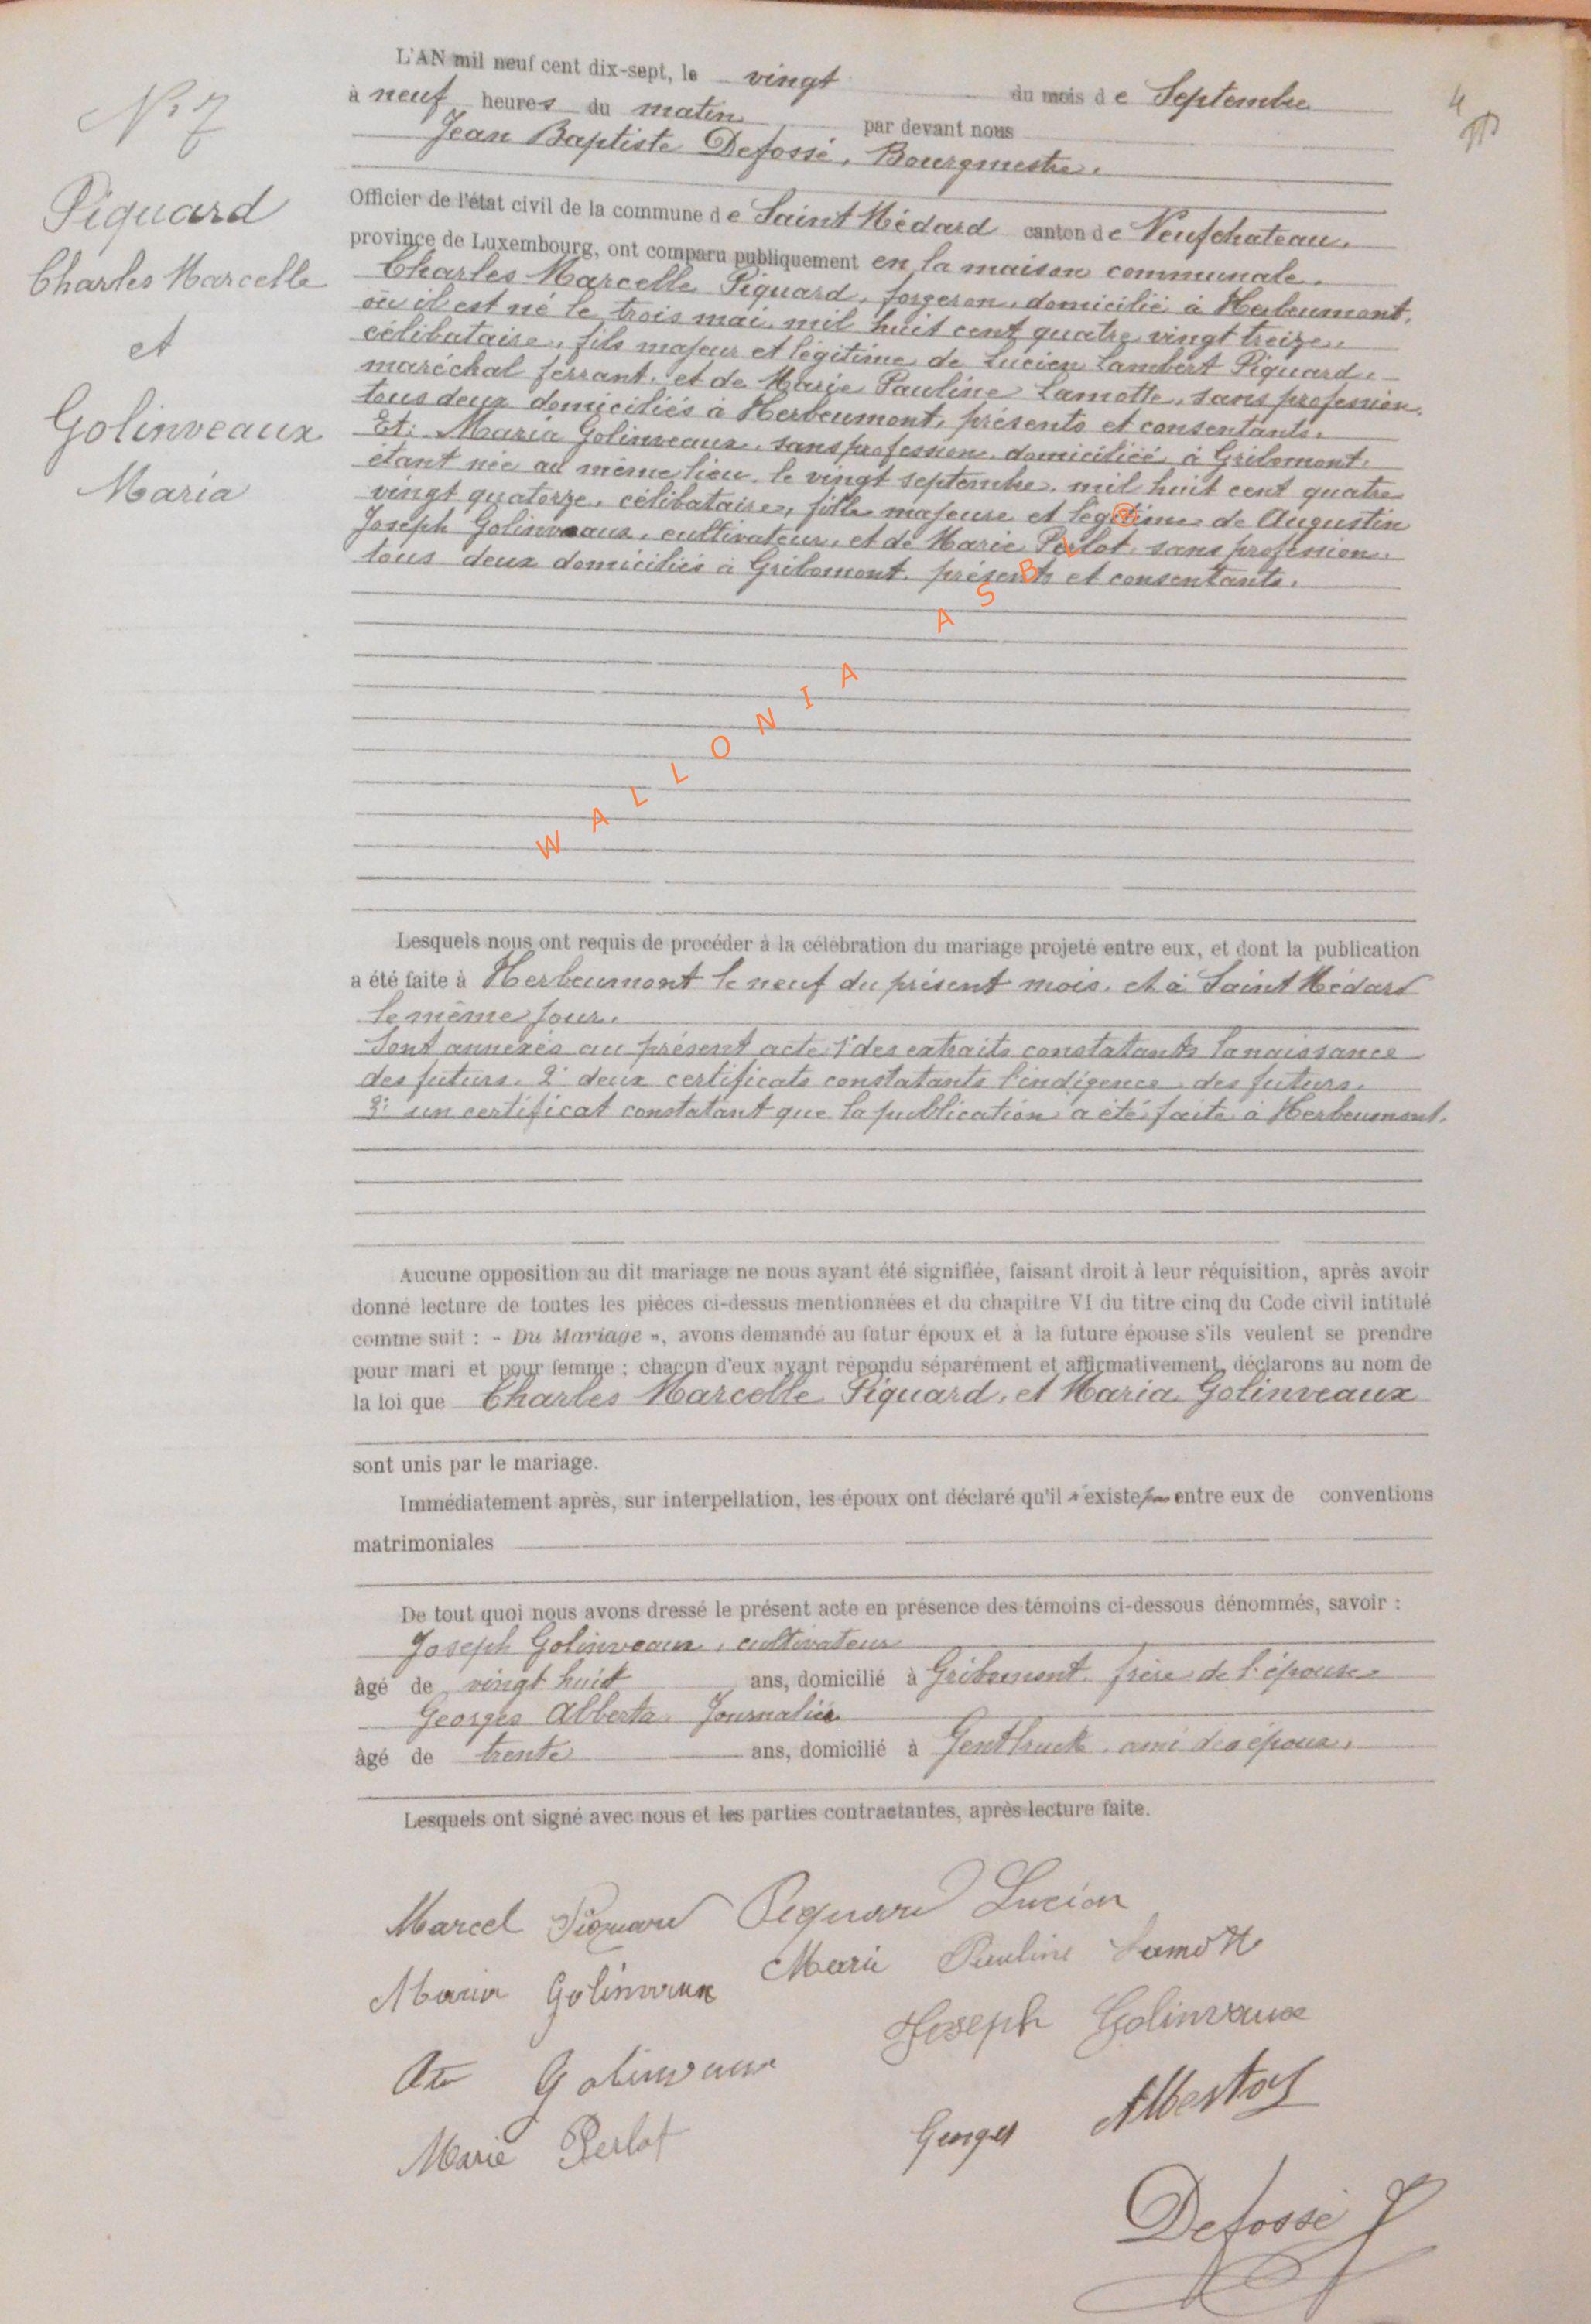 N° 7
Piquard
Charles Marcelle
et
Golinveaux
Maria
4
L'AN mil neuf cent dix-sept, le vingt du mois de Septembre
à neuf heures du matin par devant nous
Jean Baptiste Defossé, Bourgmestre,
Officier de l'état civil de la commune de Saint Médard canton de Neufchateau,
province de Luxembourg, ont comparu publiquement en la maison communale,
Charles Marcelle Piquard, forgeron, domicilié à Herbeumont,
où il est né le trois mai, mil huit cent quatre vingt treize,
célibataire, fils majeur et légitime de Lucien Lambert Piquard,
maréchal ferrant, et de Marie Pauline Lamotte, sans profession,
tous deux domiciliés à Herbeumont, présents et consentants,
Et: Maria Golinveaux, sans profession, domiciliée à Gribomont,
étant née au même lieu, le vingt septembre, mil huit cent quatre
vingt quatorze, célibataire, fille majeure et légitime de Augustin
Joseph Golinveaux, cultivateur, et de Marie Perlot, sans profession,
tous deux domiciliés à Gribomont, présents et consentants.
WALLONIA ASBL ®
Lesquels nous ont requis de procéder à la célébration du mariage projeté entre eux, et dont la publication
a été faite à Herbeumont le neuf du présent mois, et à Saint Médard
le même jour.
Sont annexés au présent acte: 1° des extraits constatants la naissance
des futurs. 2° deux certificats constatants l'indigence des futurs.
3° un certificat constatant que la publication a été faite à Herbeumont.
Aucune opposition au dit mariage ne nous ayant été signifiée, faisant droit à leur réquisition, après avoir
donné lecture de toutes les pièces ci-dessus mentionnées et du chapitre VI du titre cinq du Code civil intitulé
comme suit : « Du Mariage », avons demandé au futur époux et à la future épouse s'ils veulent se prendre
pour mari et pour femme ; chacun d'eux ayant répondu séparément et affirmativement, déclarons au nom de
la loi que Charles Marcelle Piquard, et Maria Golinveaux
sont unis par le mariage.
Immédiatement après, sur interpellation, les époux ont déclaré qu'il n'existe pas entre eux de conventions
matrimoniales
De tout quoi nous avons dressé le présent acte en présence des témoins ci-dessous dénommés, savoir :
Joseph Golinveaux, cultivateur
âgé de vingt huit ans, domicilié à Gribomont, frère de l'épouse
Georges Alberta Journalier
âgé de trente ans, domicilié à ami des époux,
Lesquels ont signé avec nous et les parties contractantes, après lecture faite.
Marcel Piquard Piquard Lucien
Maria Golinvaux Marie Pauline Lamotte
Joseph Golinvaux
Golinvaux
Georges
Marie Perlot
Defossé J